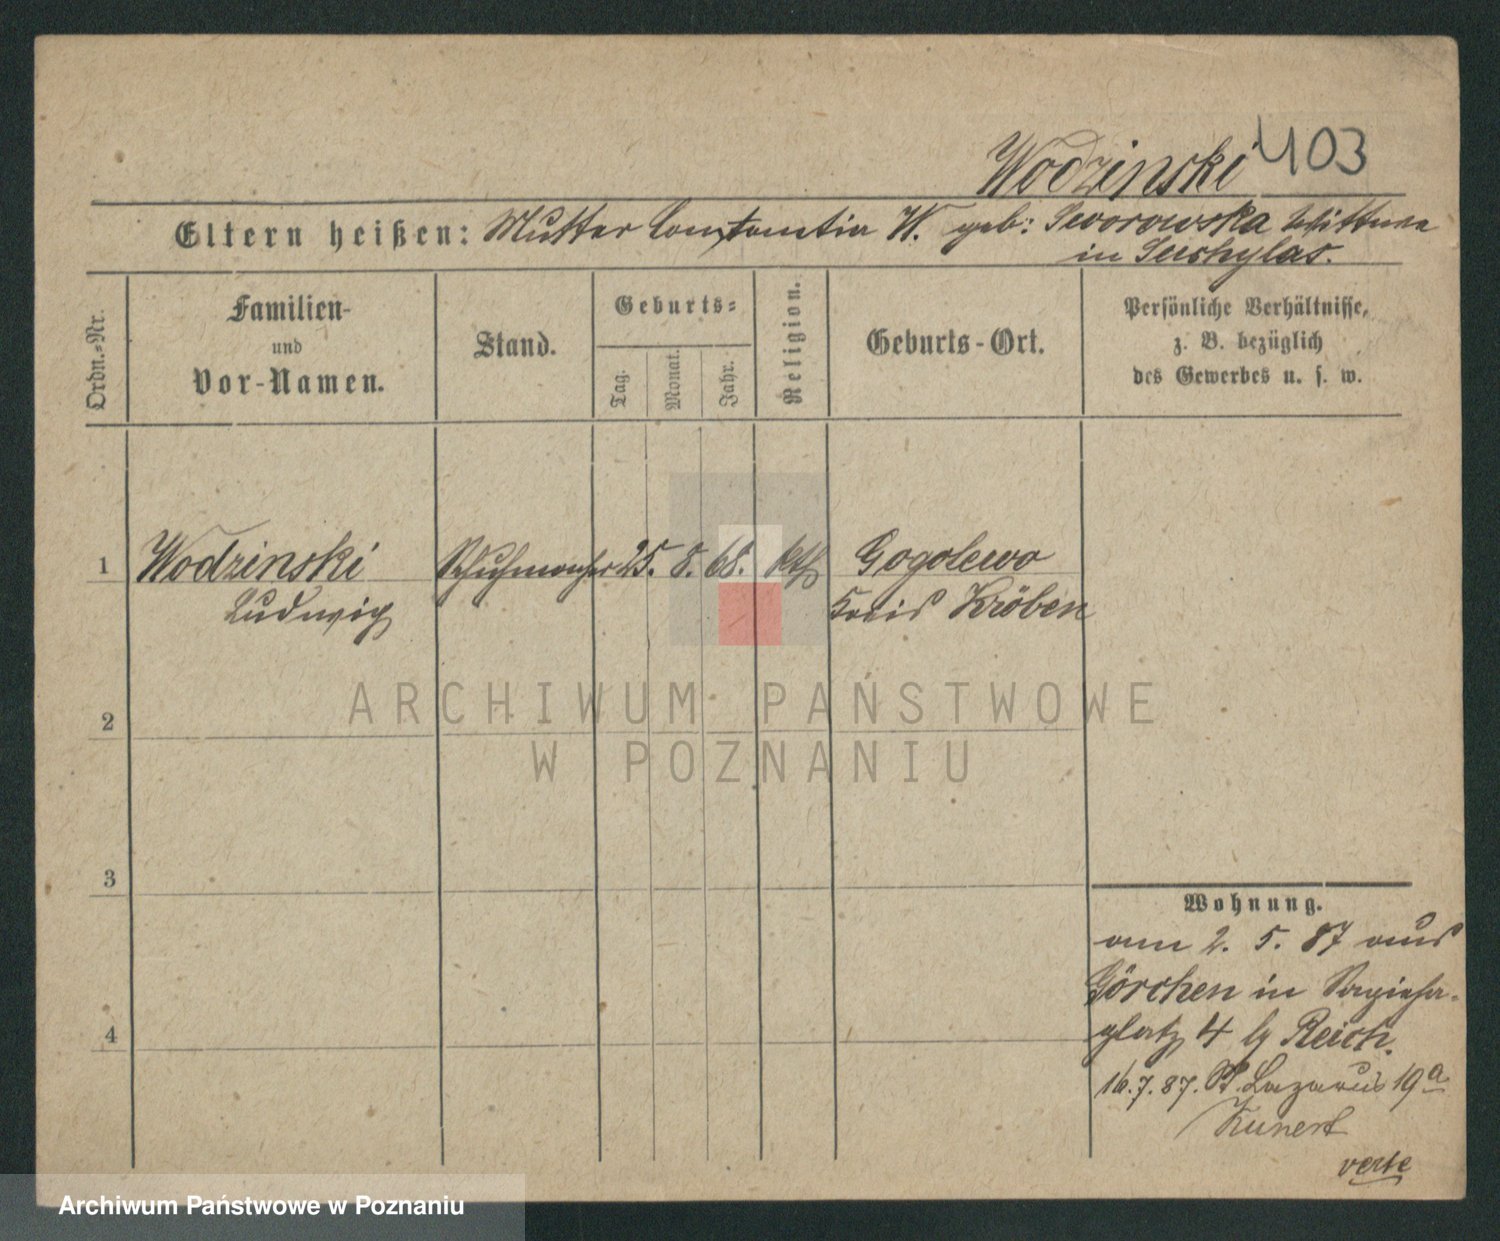 Wodzinski 403
Eltern heißen: Mutter Constantia W. geb: Sworowska Wittwe
in
Ordn.-Nr.
Familien-
und
Vor-Namen.
Stand.
Geburts-
Tag.
Monat.
Jahr.
Religion.
Geburts-Ort.
Persönliche Verhältnisse,
z. B. bezüglich
des Gewerbes u. s. w.
1 Wodzinski Schuhmacher 25. 8. 68. kth Gogolewo
Ludwig Kreis Kröben
ARCHIWUM PAŃSTWOWE
2
W POZNANIU
3
Wohnung.
am 2. 5. 87 aus
Görchen in Sapieha-
4
platz 4 by Reich.
16.7.87. St. Lazarus 19a
Kunert
verte
Archiwum Państwowe w Poznaniu